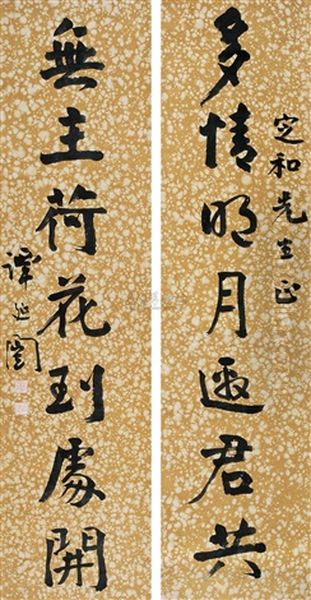 定和先生正
多情明月邀君共
無主荷花到處開
譚延闓